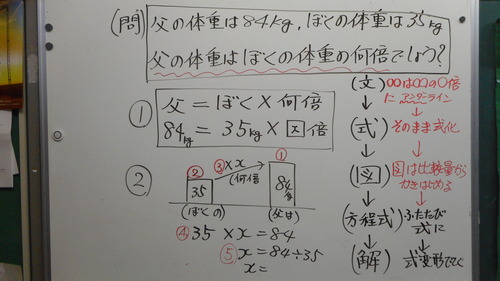 (問) 父の体重は84kg,ぼくの体重は35kg
父の体重はぼくの体重の何倍でしょう?
① 父=ぼく×何倍
84kg=35kg×x倍
②
② ③×x ①
35 (何倍 84kg
(ぼくの) (父は)
④ 35×x=84
⑤ x=84÷35
x=
(文) ○○は○○の○倍
にアンダーライン
↓
(式) そのまま式化
↓
(図) 図は比較量から
かきはじめる
↓
(方程式) ふたたび
式に
↓
(解) 式変形でとく